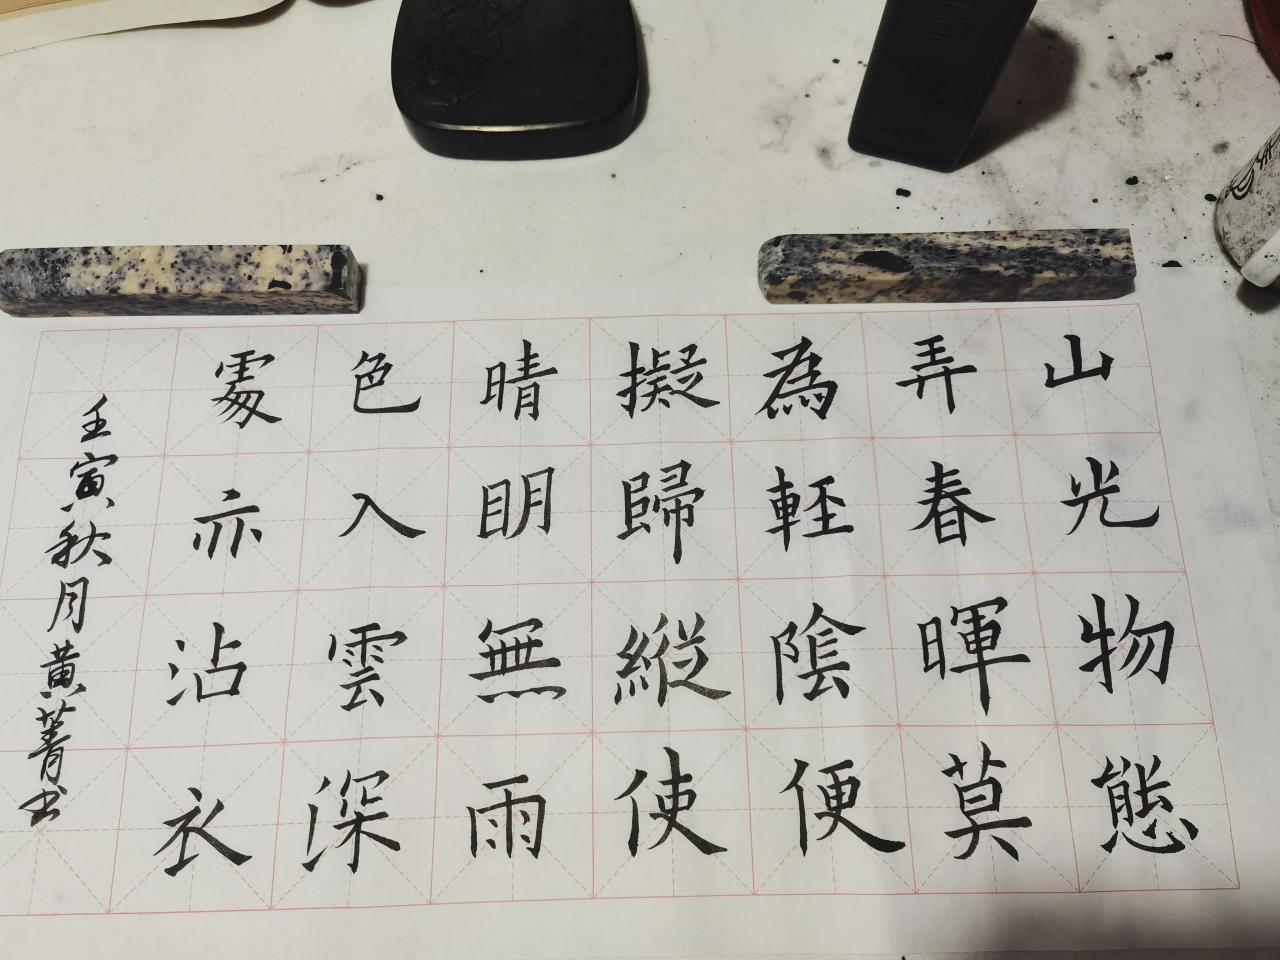 山光物態
弄春暉莫
為輕陰便
擬歸縱使
晴明無雨
色入雲深
處亦沾衣
壬寅秋月黄菁书